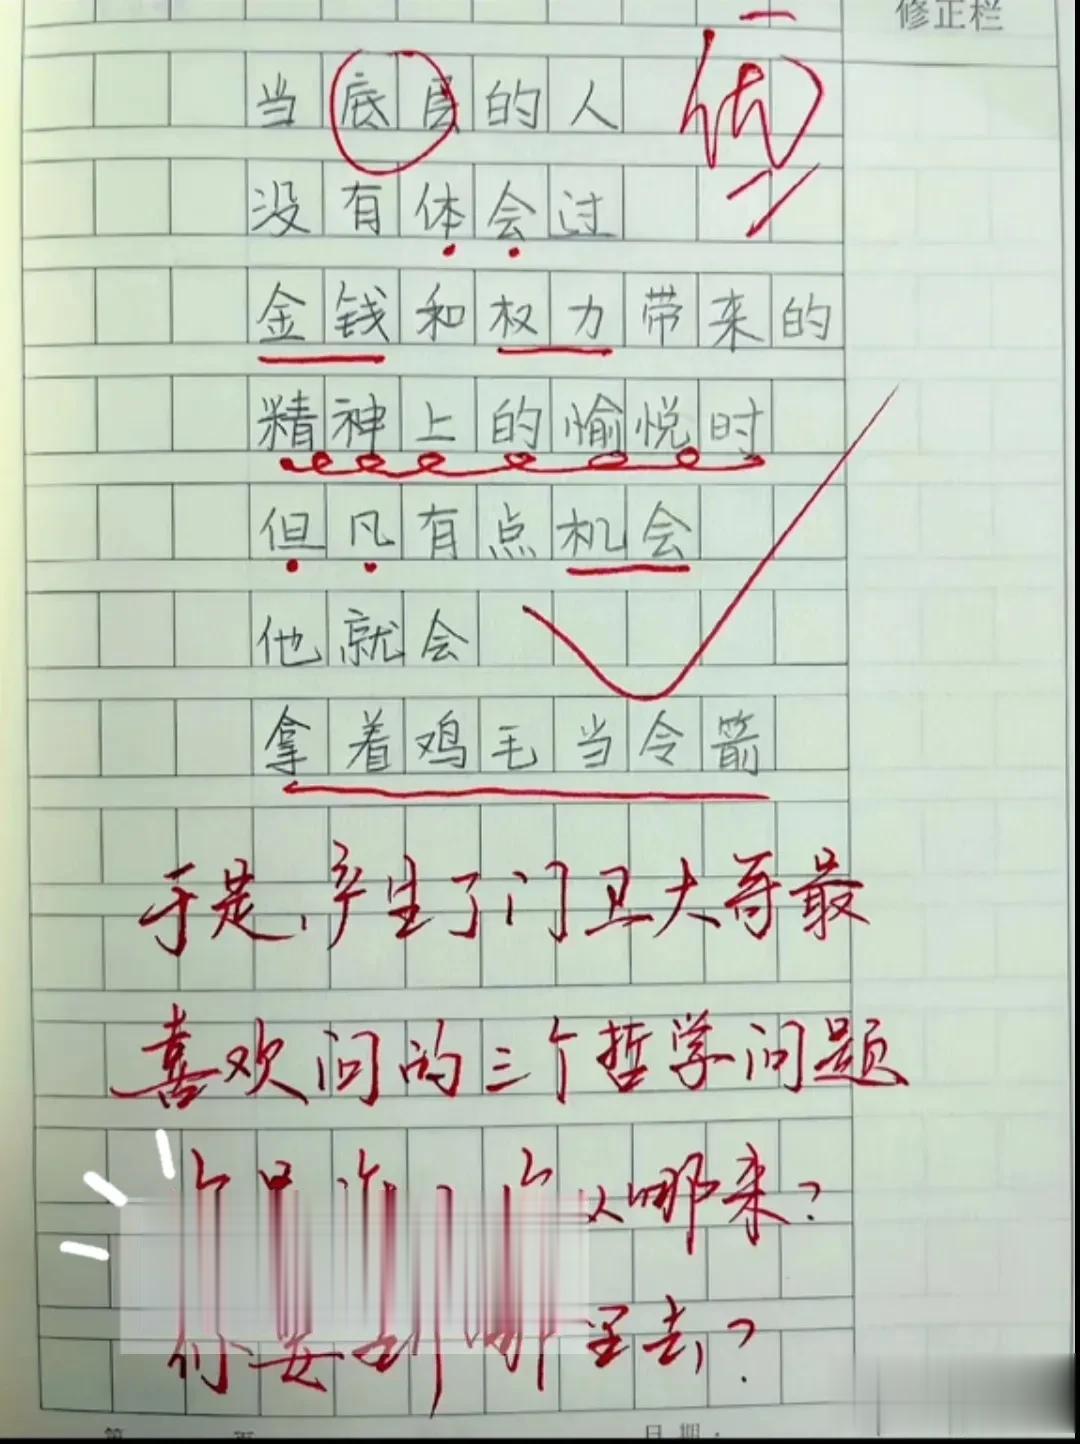 修正栏
当底层的人
优
没有体会过
金钱和权力带来的
精神上的愉悦时
但凡有点机会
他就会
拿着鸡毛当令箭
于是,产生了门卫大哥最
喜欢问的三个哲学问题
从哪来?
你要到哪里去?
第 页 日期: